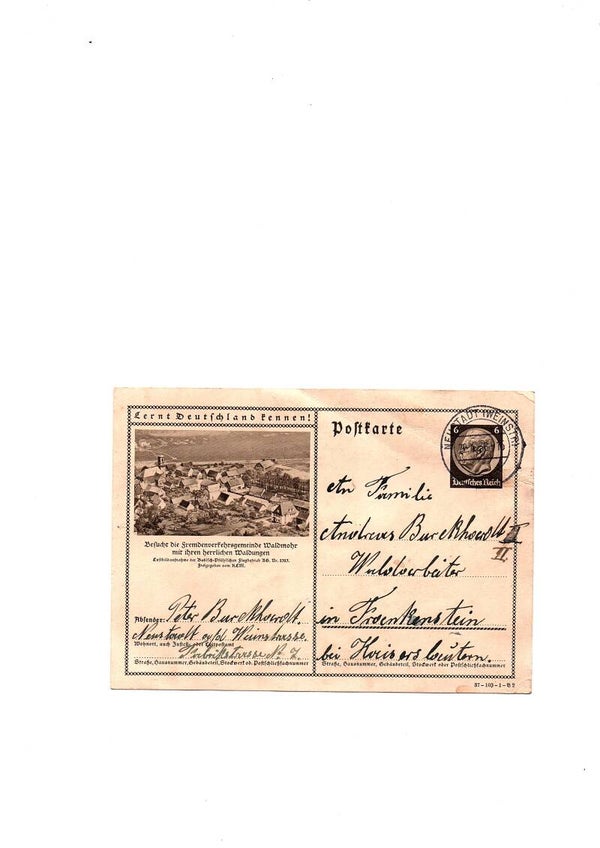 Lernt Deutschland kennen!
Besucht die Fremdenverkehrsgemeinde Waldmohr
mit ihren herrlichen Waldungen
Luftbildaufnahme der Badisch-Pfälzischen Flugbetrieb AG. Nr. 1303.
Freigegeben vom RLM.
Absender: Peter Burckhardt.
Neustadt a/d. Weinstrasse.
Wohnort, auch Zustell- oder Leitpostamt
Straße, Hausnummer, Gebäudeteil, Stockwerk od. Postschließfachnummer
Postkarte
NEUSTADT (WEINSTR)
6 6
Deutsches Reich
An Familie
Andreas Burckhardt II
II
Waldarbeiter
in Frankenstein
bei Kaiserslautern.
Straße, Hausnummer, Gebäudeteil, Stockwerk oder Postschließfachnummer
37-103-1-B2